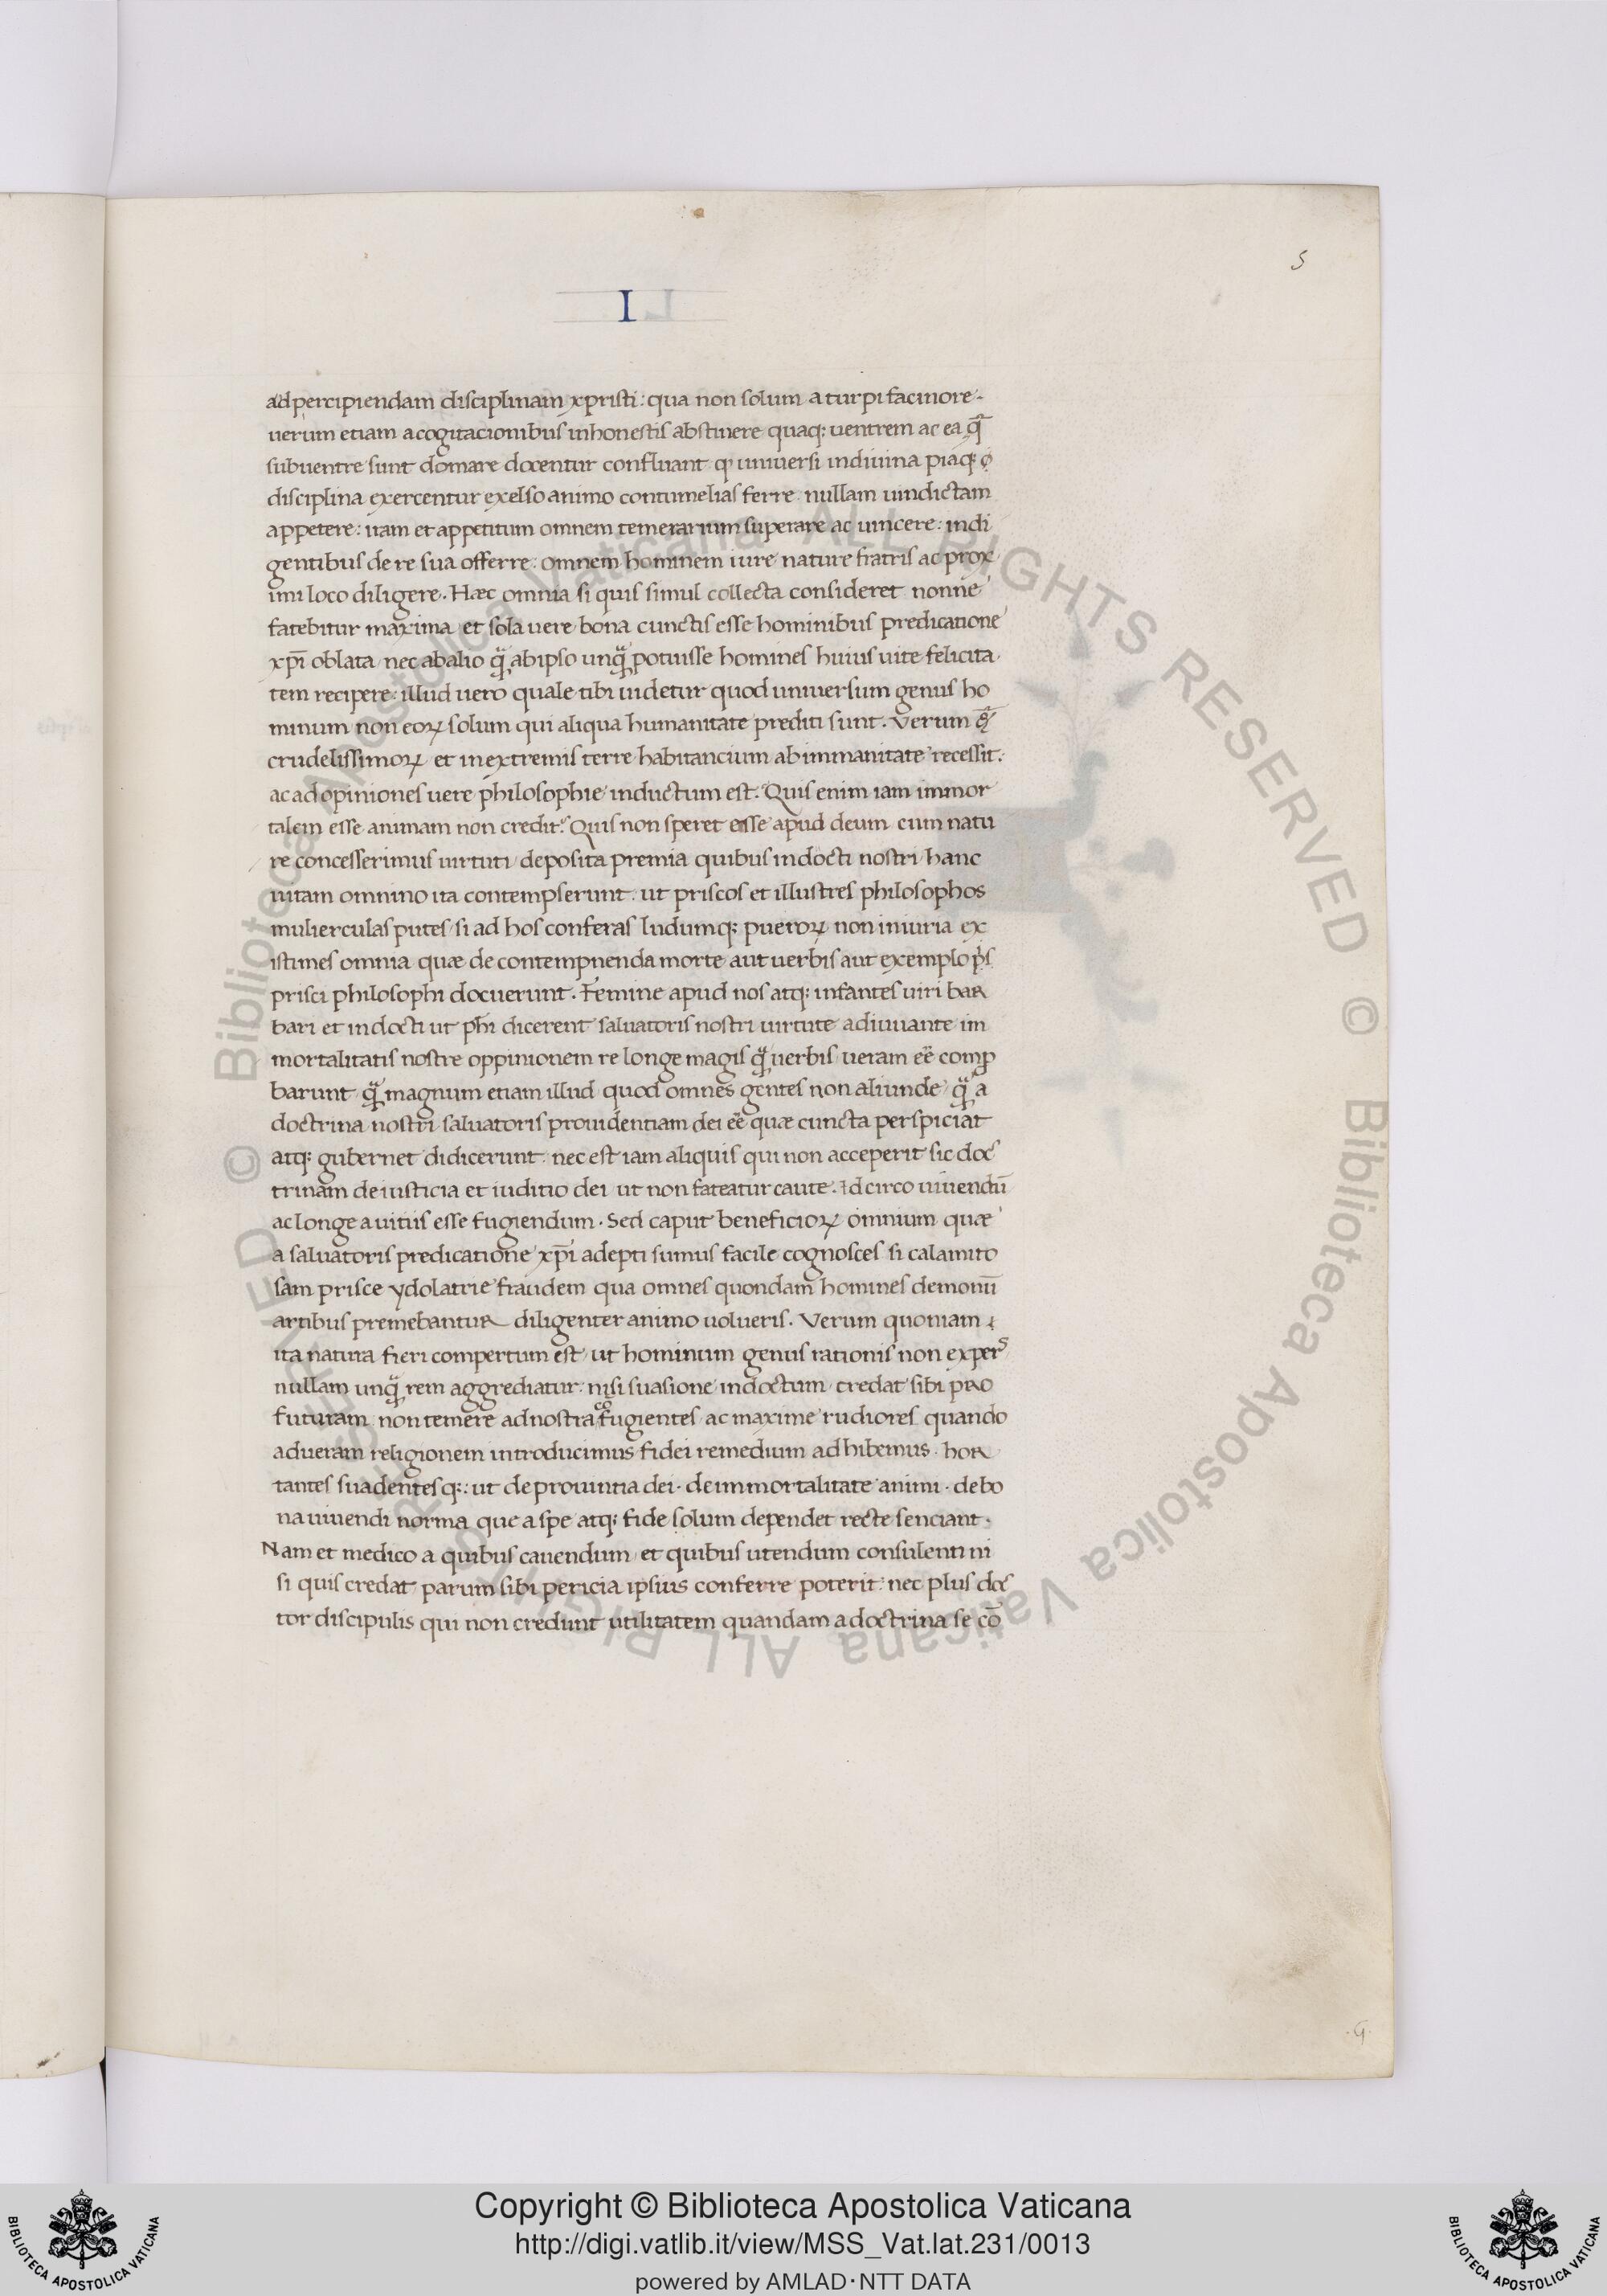 5
I
ad percipiendam disciplinam xpristi: qua non solum a turpi facinore.
uerum etiam a cogitacionibus inhonestis abstinere quaq; uentrem ac ea q̄
sub uentre sunt domare docentur confluant
disciplina exercentur exelso animo contumelias ferre nullam uindictam
appetere: iram et appetitum omnem temerarium superare ac uincere: indi
gentibus de re sua offerre: omnem hominem iure nature fratris ac prox
imi loco diligere. Hæc omnia si quis simul collecta consideret nonne
fatebitur maxima et sola uere bona cunctis esse hominibus predicatione
xp̄i oblata nec ab alio q̄ ab ipso unq̄ potuisse homines huius uite felicita
tem recipere: illud uero quale tibi uidetur quod uniuersum genus ho
minum non eoꝝ solum qui aliqua humanitate prediti sunt. Verum
crudelissimoꝝ et in extremis terre habitancium ab immanitate recessit:
ac ad opiniones uere philosophie inductum est. Quis enim iam immor
talem esse animam non credit. Quis non speret esse apud deum cum natu
re concesserimus uirtuti deposita premia quibus indocti nostri hanc
uitam omnino ita contempserunt ut priscos et illustres philosophos
mulierculas putes si ad hos conferas ludumq; pueroꝝ non iniuria ex
istimes omnia quæ de contempnenda morte aut uerbis aut exemplo
prisci philosophi docuerunt. Femine apud nos atq; infantes uiri bar
bari et indocti ut ph̄i dicerent saluatoris nostri uirtute adiuuante im
mortalitatis nostre oppinionem re longe magis q̄ uerbis ueram eē comꝓ
barunt q̄ magnum etiam illud quod omnes gentes non aliunde q̄ a
doctrina nostri saluatoris prouidentiam dei eē quæ cuncta perspiciat
atq; gubernet didicerunt nec est iam aliquis qui non acceperit sic doc
trinam de iusticia et iuditio dei ut non fateatur caute. Idcirco uiuendū
ac longe a uitiis esse fugiendum. Sed caput beneficioꝝ omnium quæ
a saluatoris predicatione xp̄i adepti sumus facile cognosces si calamito
sam prisce ydolatrie fraudem qua omnes quondam homines demonū
artibus premebantur diligenter animo uolueris. Verum quoniam
ita natura fieri compertum est ut hominum genus rationis non expers
nullam unq̄ rem aggrediatur: nisi suasione indoctum credat sibi pro
futuram non temere ad nostra cōfugientes ac maxime rudiores quando
ad ueram religionem introducimus fidei remedium adhibemus. hor
tantes suadentesq;: ut de prouintia dei. de immortalitate animi. de bo
na uiuendi norma que a spe atq; fide solum dependet recte senciant.
Nam et medico a quibus cauendum et quibus utendum consulenti ni
si quis credat parum sibi pericia ipsius conferre poterit: nec plus doc
tor discipulis qui non credunt utilitatem quandam a doctrina se cō
.G.
© Biblioteca Apostolica Vaticana ALL RIGHTS RESERVED © Biblioteca Apostolica Vaticana ALL RIGHTS RESERVED
BIBLIOTECA APOSTOLICA VATICANA
Copyright © Biblioteca Apostolica Vaticana
http://digi.vatlib.it/view/MSS_Vat.lat.231/0013
powered by AMLAD·NTT DATA
BIBLIOTECA APOSTOLICA VATICANA